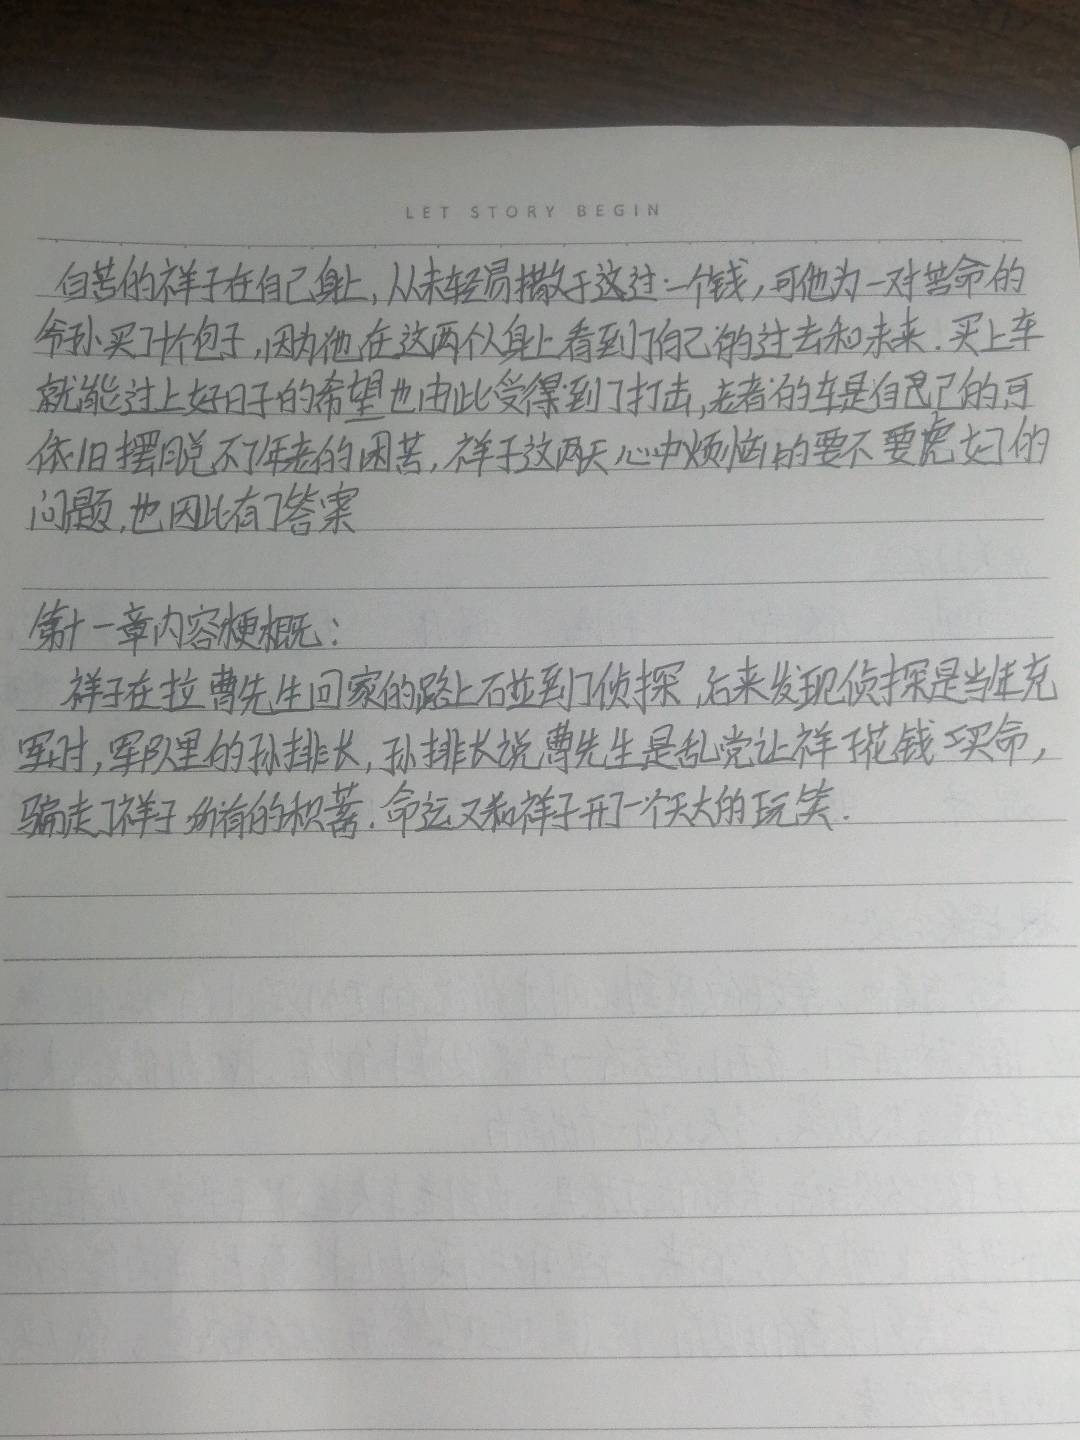 LET STORY BEGIN
白苦的祥子在自己身上,从未轻易撒手这过一个钱,可他为一对苦命的
爷孙买了十个包子,因为他在这两个人身上看到了自己的过去和未来.买上车
就能过上好日子的希望也由此受得到了打击,老者的车是自己的,可
依旧摆脱不了年老的困苦,祥子这两天心中烦恼的要不要虎妞的
问题,也因此有了答案
第十一章内容梗概:
祥子在拉曹先生回家的路上碰到了侦探,后来发现侦探是当年充
军时,军队里的孙排长,孙排长说曹先生是乱党让祥子花钱买命,
骗走了祥子所有的积蓄.命运又和祥子开了一个天大的玩笑.